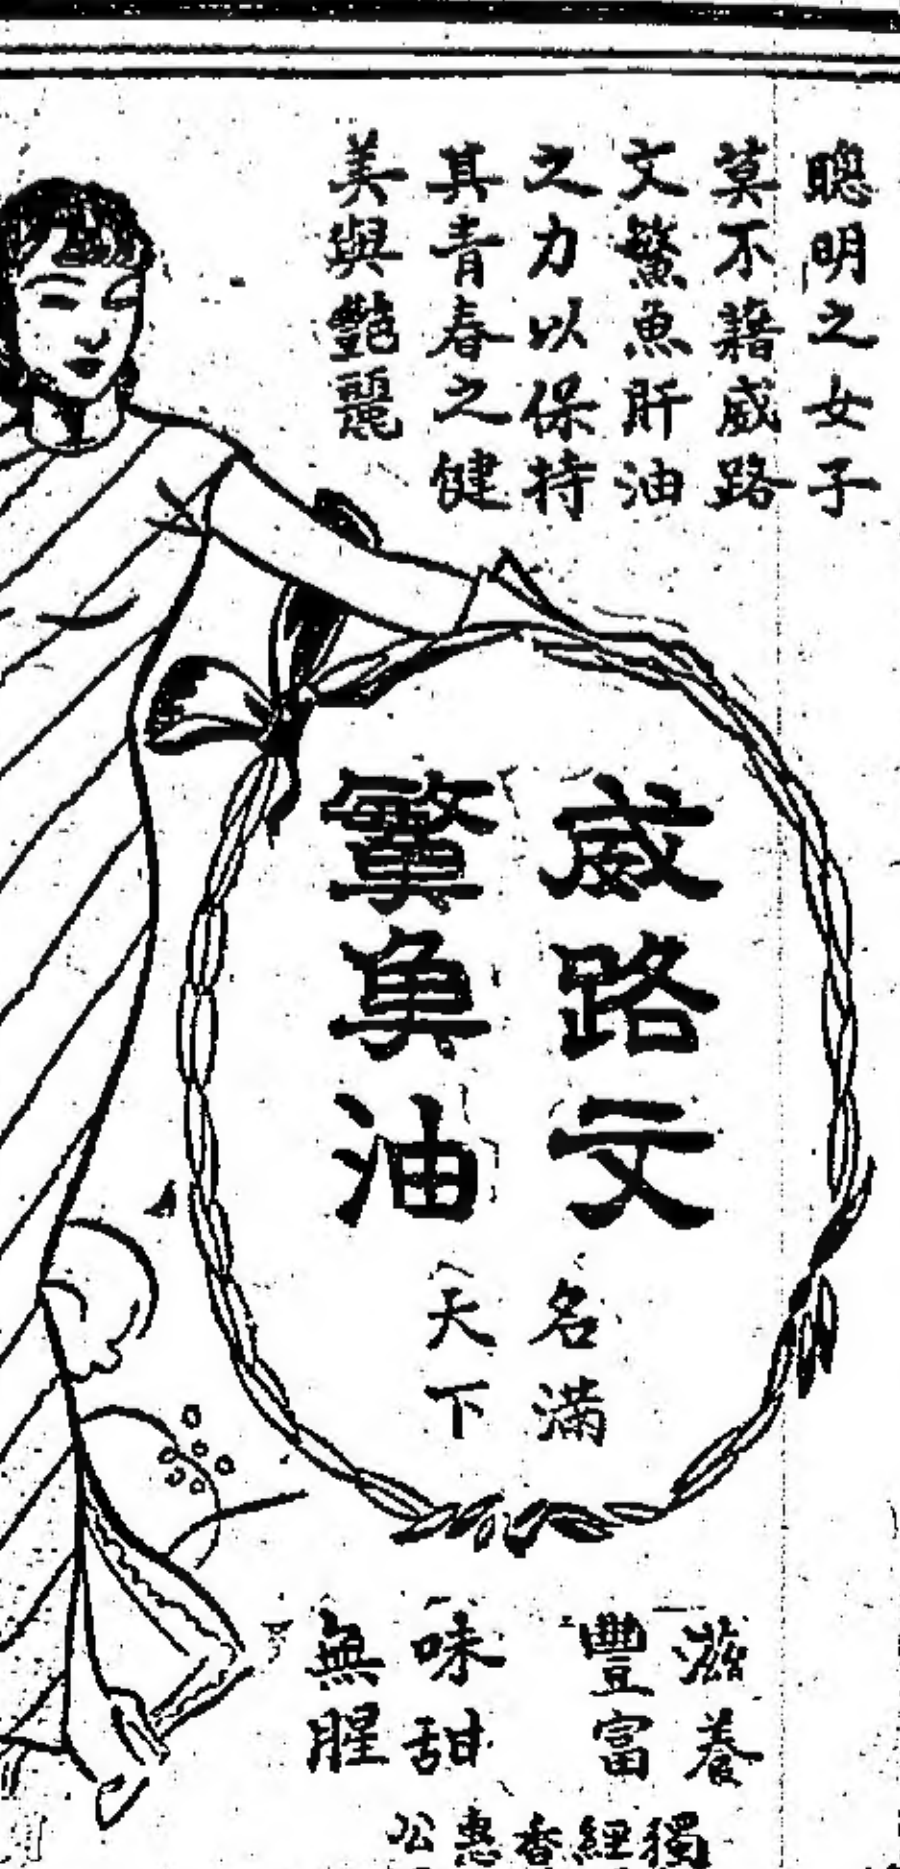 聰明之女子
莫不藉威路
文鰵魚肝油
之力以保持
其青春之健
美與艷麗
威路文
鰵魚油
名滿
天下
滋養
豐富
味甜
無腥
獨經香惠公